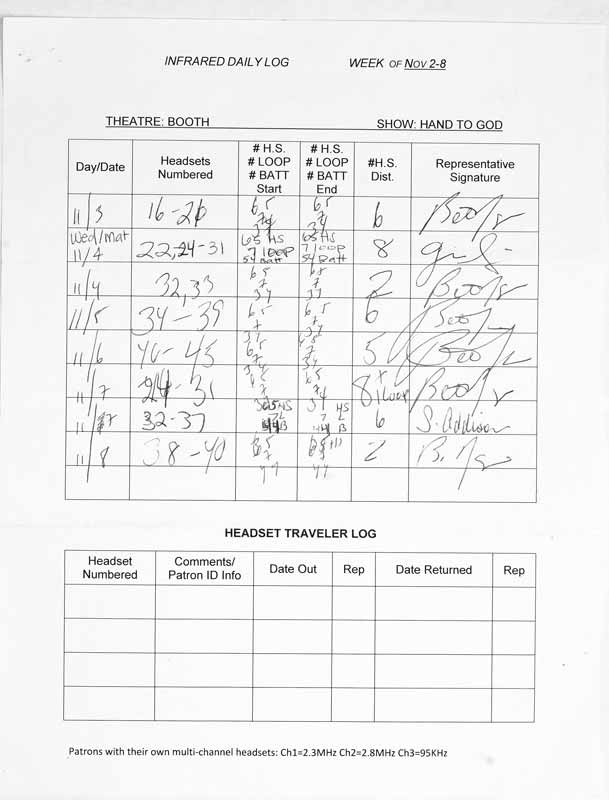 INFRARED DAILY LOG WEEK OF NOV 2-8
THEATRE: BOOTH SHOW: HAND TO GOD
Day/Date Headsets Numbered # H.S. # LOOP # BATT Start # H.S. # LOOP # BATT End #H.S. Dist. Representative Signature
11/3 16-21 65 7 65 7 6
Wed/mat 11/4 22,24-31 65 HS 7 LOOP 54 Batt 65 HS 7 LOOP 54 Batt 8
11/4 32,33 65 7 37 65 7 37 2
11/5 34-39 65 7 37 65 7 37 6
11/6 40-45 65 7 65 7 5
11/7 24-31 65 65 8 + 1 Loop
11/7 32-37 65 HS 7L 44 B HS L 44 B 6 S. Addison
11/8 38-40 65 7 44 65 7 44 2
HEADSET TRAVELER LOG
Headset Numbered Comments/ Patron ID Info Date Out Rep Date Returned Rep
Patrons with their own multi-channel headsets: Ch1=2.3MHz Ch2=2.8MHz Ch3=95KHz